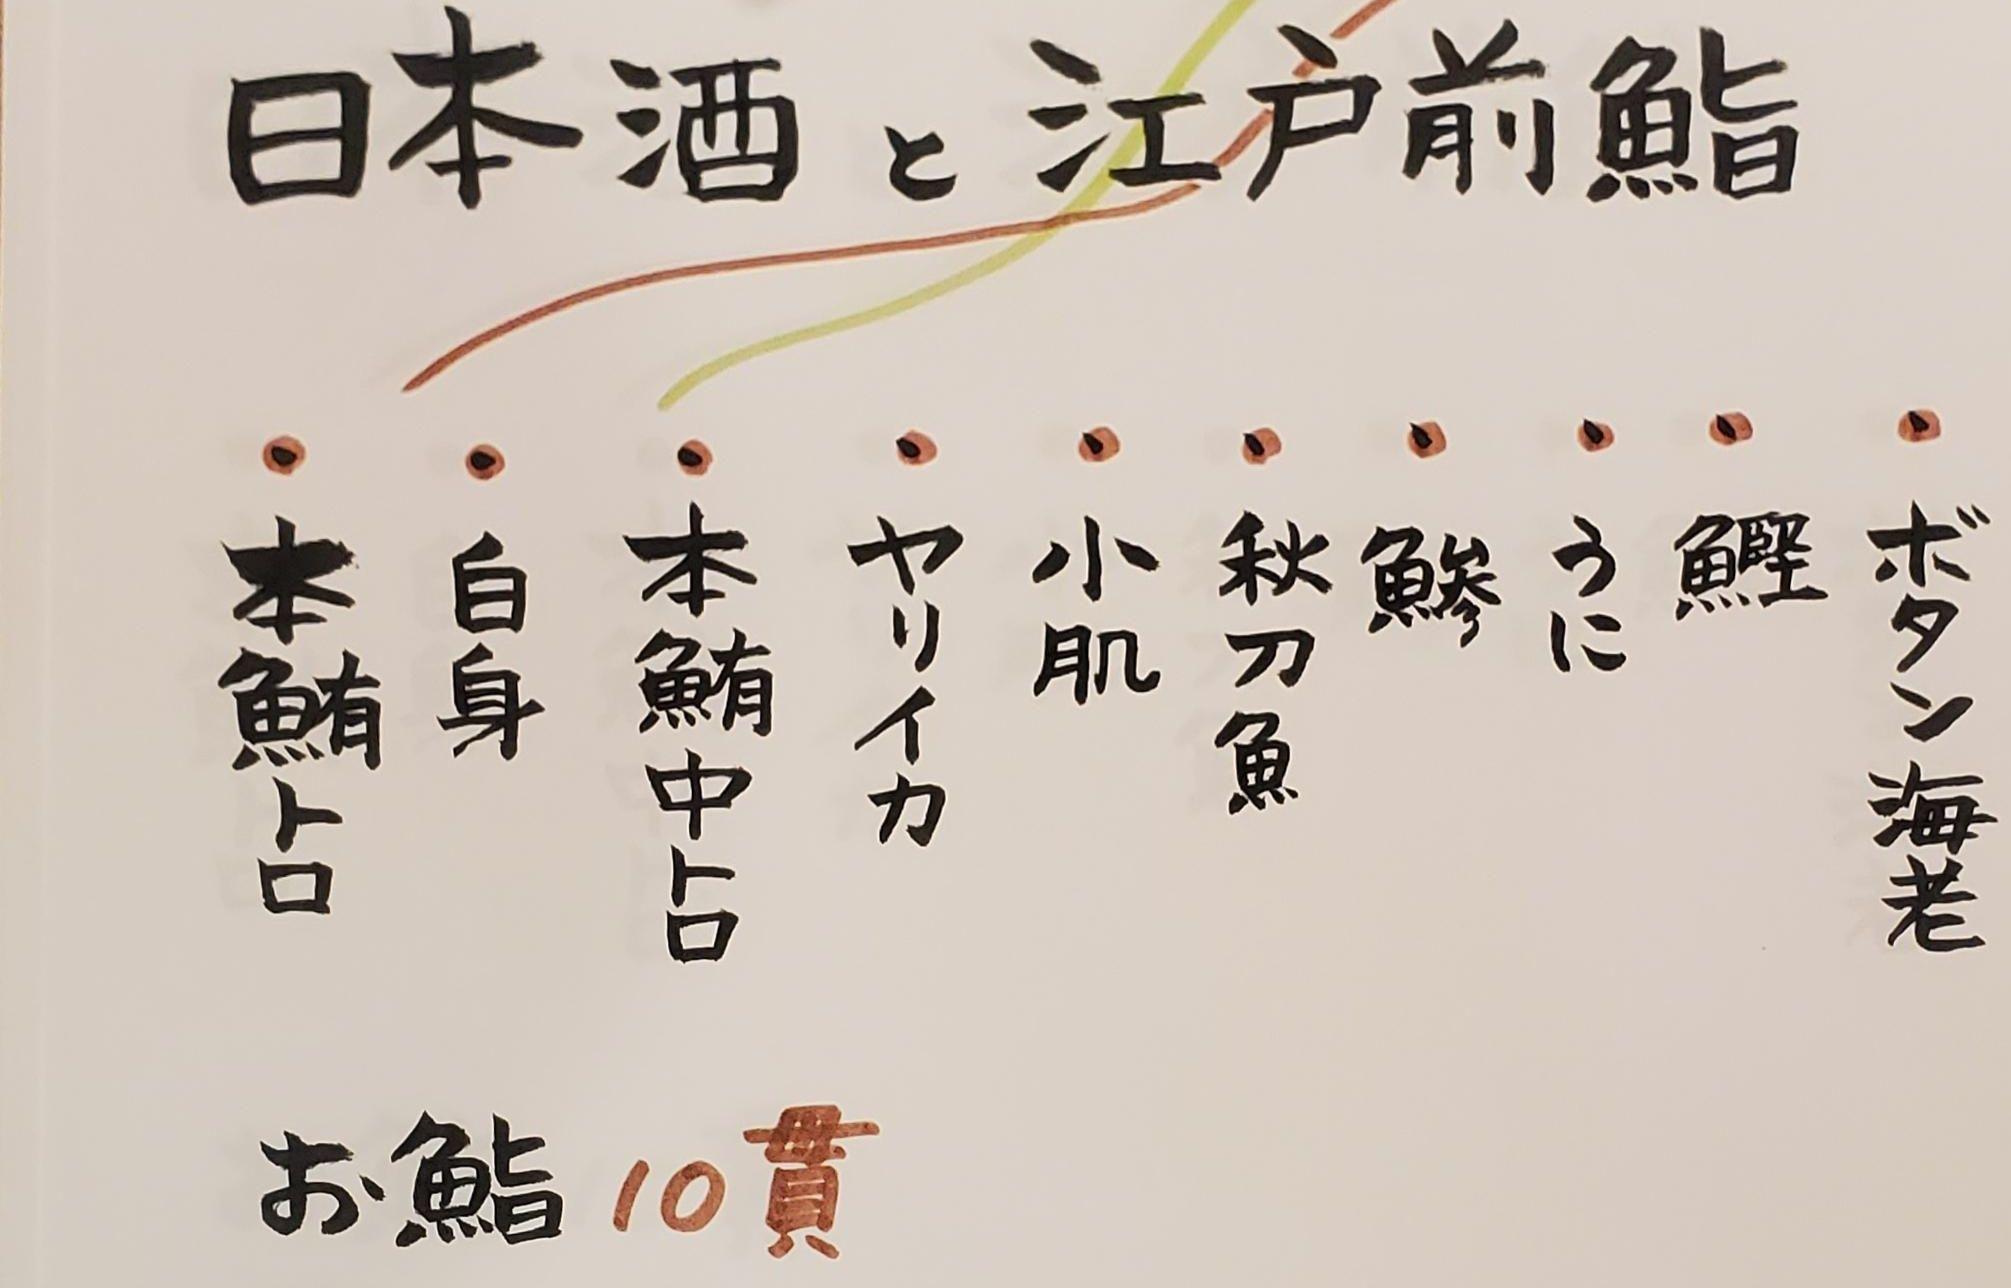 日本酒と江戸前鮨
・ボタン海老
・鰹
・うに
・鯵
・秋刀魚
・小肌
・ヤリイカ
・本鮪中トロ
・白身
・本鮪トロ
お鮨10貫